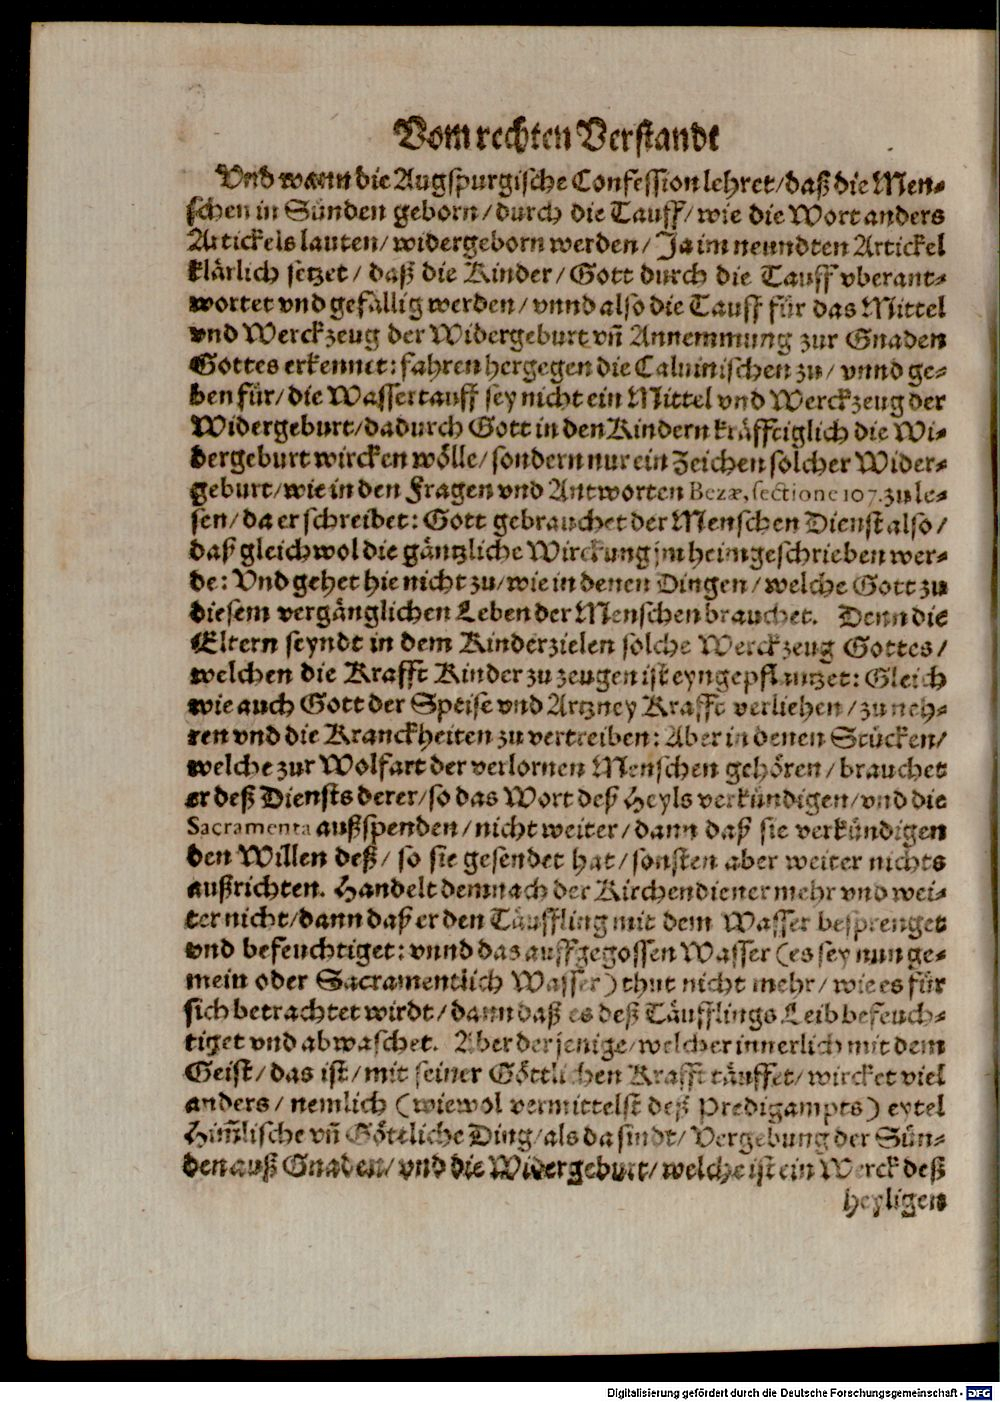 Vom rechten Verstandt
Vnd wann die Augspurgische Confession lehret/ daß die Men-
schen in Sünden geborn/ durch die Tauff/ wie die Wort anders
Artickels lauten/ widergeborn werden/ Ja im neundten Artickel
klärlich setzet/ daß die Kinder/ Gott durch die Tauff vberant-
wortet vnd gefällig werden/ vnnd also die Tauff für das Mittel
vnd Werckzeug der Widergeburt vñ Annemmung zur Gnaden
Gottes erkennet: fahren hergegen die Caluinischen zu/ vnnd ge-
ben für/ die Wassertauff sey nicht ein Mittel vnd Werckzeug der
Widergeburt/ dadurch Gott in den Kindern kräfftiglich die Wi-
dergeburt wircken wölle/ sondern nur ein Zeichen solcher Wider-
geburt/ wie in den Fragen vnd Antworten Bezæ, sectione 107. zu le-
sen/ da er schreibet: Gott gebrauchet der Menschen Dienst also/
daß gleichwol die gäntzliche Wirckung jm heimgeschrieben wer-
de: Vnd gehet hie nicht zu/ wie in denen Dingen/ welche Gott zu
diesem vergänglichen Leben der Menschen brauchet. Denn die
Eltern seyndt in dem Kinderzielen solche Werckzeug Gottes/
welchen die Krafft Kinder zu zeugen ist eyngepflantzet: Gleich
wie auch Gott der Speise vnd Artzney Krafft verliehen/ zu neh-
ren vnd die Kranckheiten zu vertreiben: Aber in denen Stücken/
welche zur Wolfart der verlornen Menschen gehören/ brauchet
er deß Diensts derer/ so das Wort deß Heyls verkündigen/ vnd die
Sacramenta außspenden/ nicht weiter/ dann daß sie verkündigen
den Willen deß/ so sie gesendet hat/ sonsten aber weiter nichts
außrichten. Handelt demnach der Kirchendiener mehr vnd wei-
ter nicht/ dann daß er den Täuffling mit dem Wasser besprenget
vnd befeuchtiget: vnnd das auffgegossen Wasser (es sey nun ge-
mein oder Sacramentlich Wasser) thut nicht mehr/ wie es für
sich betrachtet wirdt/ dann daß es deß Täufflings Leib befeuch-
tiget vnd abwaschet. Aber derjenige/ welcher innerlich mit dem
Geist/ das ist/ mit seiner Göttlichen Krafft täuffet/ wircket viel
anders/ nemlich (wiewol vermittelst deß Predigampts) eytel
Him̃lische vñ Göttliche Ding/ als da sindt/ Vergebung der Sün-
den auß Gnaden/ vnd die Widergeburt/ welche ist ein Werck deß
heyligen
Digitalisierung gefördert durch die Deutsche Forschungsgemeinschaft - DFG